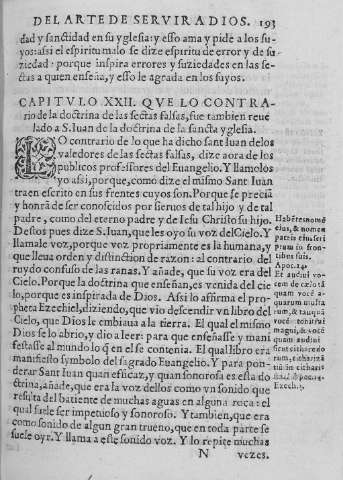 DEL ARTE DE SERVIR A DIOS. 193
dad y sanctidad en su yglesia: y esso ama y pide a los su-
yos: assi el espiritu malo se dize espiritu de error y de su-
ziedad: porque inspira errores y suziedades en las se-
ctas a quien enseña, y esso le agrada en los suyos.
CAPITVLO XXII. QVE LO CONTRA-
rio de la doctrina de las sectas falsas, fue tambien reue
lado a S. Iuan de la doctrina de la sancta yglesia.
LO contrario de lo que ha dicho sant Iuan delos
valedores de las sectas falsas, dize aora de los
publicos professores del Euangelio. Y llamolos
yo assi, porque, como dize el mismo Sant Iuan
traen escrito en sus frentes cuyos son. Porque se precia
y honrã de ser conoscidos por sieruos de tal hijo y de tal
padre, como del eterno padre y de Iesu Christo su hijo.
Destos pues dize S. Iuan, que les oyo su voz del Cielo. Y
llamale voz, porque voz propriamente es la humana, y
que lleua orden y distinction de razon: al contrario del
ruydo confuso de las ranas. Y añade, que su voz era del
Cielo. Porque la doctrina que enseñan, es venida del cie
lo, porque es inspirada de Dios. Assi lo affirma el pro-
pheta Ezechiel, diziendo, que vio descendir vn libro del
Cielo, que Dios le embiaua a la tierra. El qual el mismo
Dios se lo abrio, y dio a leer: para que enseñasse y mani
festasse al mundo lo q̃ en el se contenia. El qual libro era
manifiesto symbolo del sagrado Euangelio. Y para pon-
derar Sant Iuan quan efficaz, y quan sonorosa es esta do
ctrina, añade, que era la voz dellos como vn sonido que
resulta del batiente de muchas aguas en alguna roca: el
qual suele ser impetuoso y sonoroso. Y tambien, que era
como sonido de algun gran trueno, que en toda parte se
suele oyr. Y llama a este sonido voz. Y lo repite muchas
N vezes.
Habẽtes nomẽ
eius, & nomen
patris eius scri
ptum in fron-
tibus suis.
Apoc. 14.
Et audiui vo-
cem de cælo tã
quam vocẽ a-
quarum multa
rum, & tanquã
vocẽ tonitrui
magni, & vocẽ
quam audiui
sicut citharœdo
rum, citharizã
tiũ in citharis
suis. Apoc. 14.
Ezech. 2.